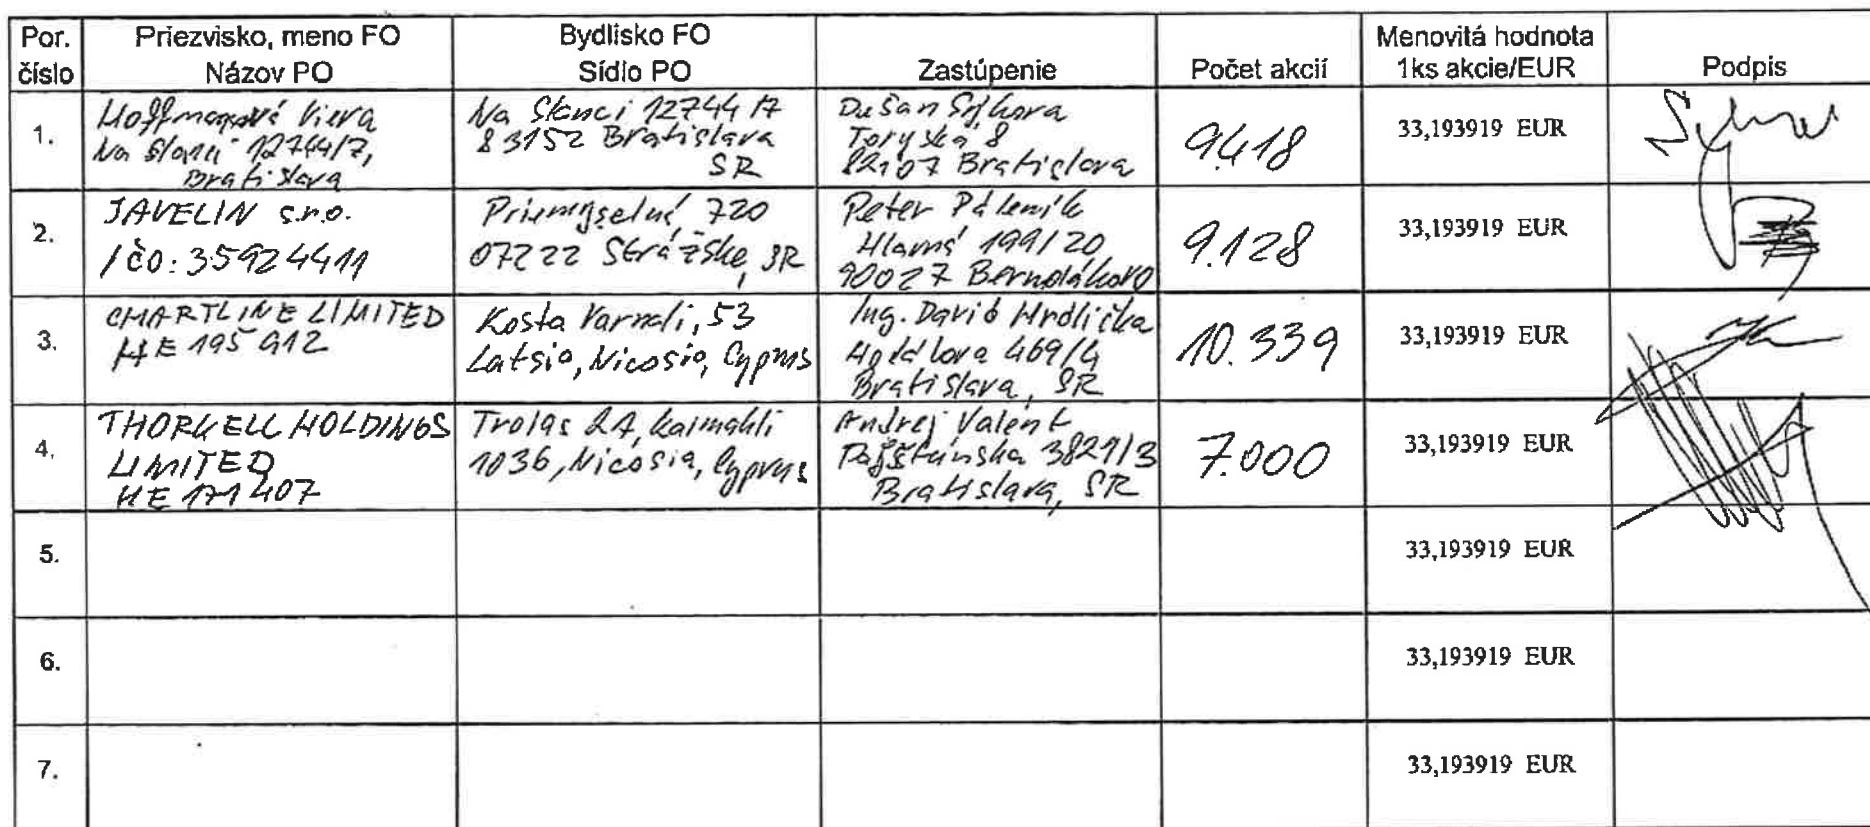 Por. číslo
Priezvisko, meno FO
Názov PO
Bydlisko FO
Sídlo PO
Zastúpenie
Počet akcií
Menovitá hodnota
1ks akcie/EUR
Podpis
1.
Hoffmanová Viera
Na Slanci 12744/7,
Bratislava
Na Slanci 12744/7
83152 Bratislava
SR
Dušan Sýkora
Toryská 8
82107 Bratislava
9.418
33,193919 EUR
2.
JAVELIN s.r.o.
IČO: 35924411
Priemyselná 720
07222 Strážske, SR
Peter Páleník
Hlavná 199/20
90027 Bernolákovo
9.128
33,193919 EUR
3.
CHARTLINE LIMITED
HE 195 912
Kosta Varnali, 53
Latsia, Nicosia, Cyprus
Ing. David Hrdlička
469/4
Bratislava, SR
10.339
33,193919 EUR
4.
THORKELL HOLDINGS
LIMITED
HE 171 407
Troias 2A, Kaimakli
1036, Nicosia, Cyprus
Andrej Valent
Pajštúnska 3821/3
Bratislava, SR
7.000
33,193919 EUR
5.
33,193919 EUR
6.
33,193919 EUR
7.
33,193919 EUR